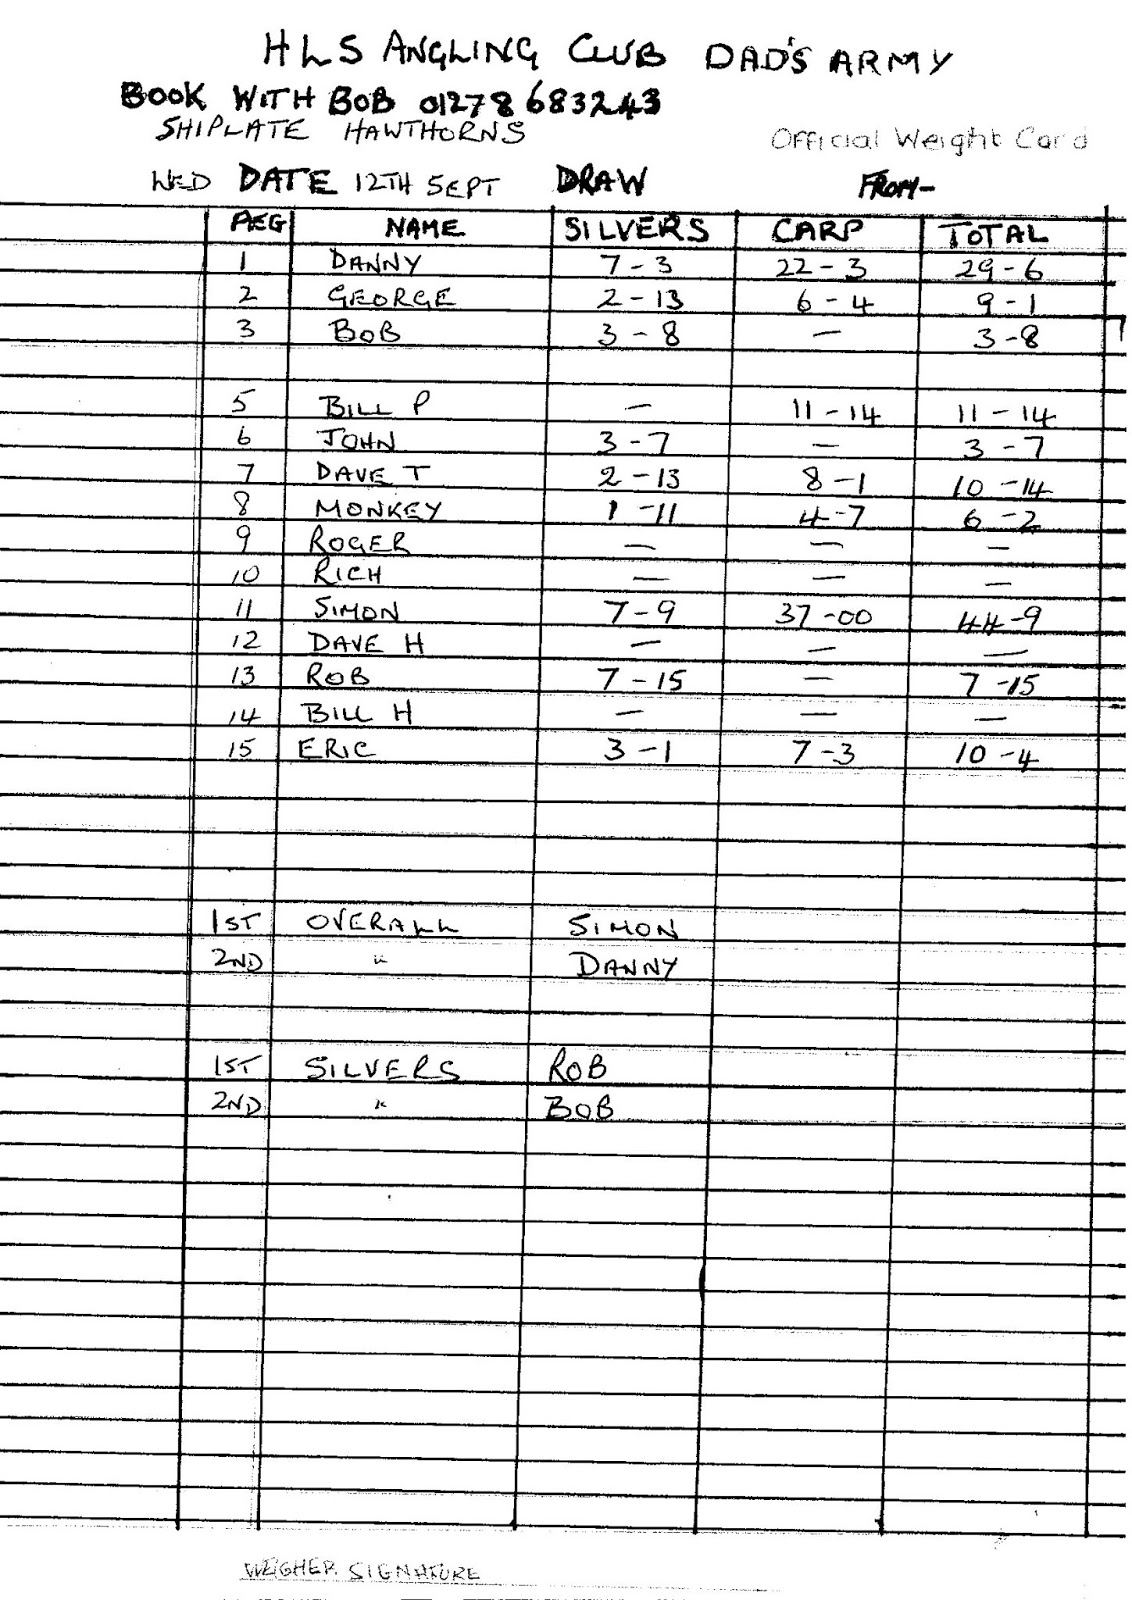 HLS ANGLING CLUB DAD'S ARMY
BOOK WITH BOB 01278 683243
SHIPLATE HAWTHORNS
Official Weight Card
WED DATE 12TH SEPT DRAW FROM-
PEG NAME SILVERS CARP TOTAL
1 DANNY 7-3 22-3 29-6
2 GEORGE 2-13 6-4 9-1
3 BOB 3-8 — 3-8
5 BILL P — 11-14 11-14
6 JOHN 3-7 — 3-7
7 DAVE T 2-13 8-1 10-14
8 MONKEY 1-11 4-7 6-2
9 ROGER — — —
10 RICH — — —
11 SIMON 7-9 37-00 44-9
12 DAVE H — — —
13 ROB 7-15 — 7-15
14 BILL H — — —
15 ERIC 3-1 7-3 10-4
1ST OVERALL SIMON
2ND " DANNY
1ST SILVERS ROB
2ND " BOB
WEIGHER SIGNATURE